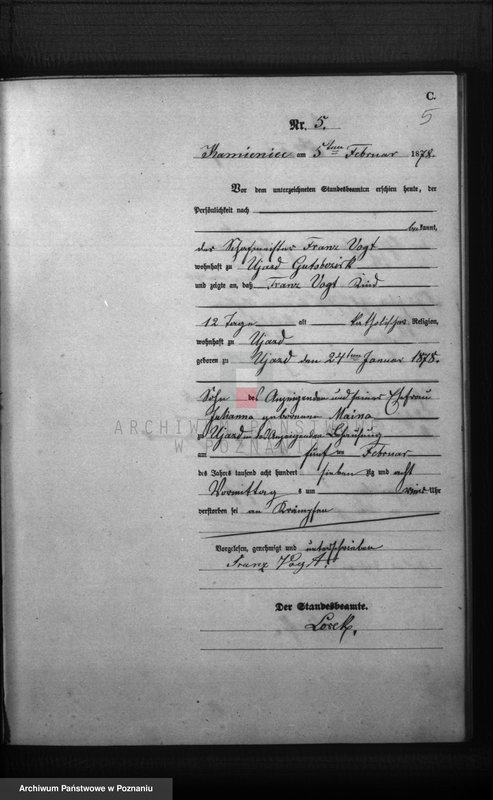 C.
5
Nr. 5.
Kamieniec am 5ten Februar 1878.
Vor dem unterzeichneten Standesbeamten erschien heute, der
Persönlichkeit nach
bekannt,
der Schafmeister Franz Vogt
wohnhaft zu Ujazd Gutsbezirk
und zeigte an, daß Franz Vogt Kind
12 Tage alt katholischer Religion,
wohnhaft zu Ujazd
geboren zu Ujazd den 24ten Januar 1878.
Sohn des Anzeigenden und seiner Ehefrau
Julianna geborenen
zu Ujazd in des Anzeigenden Behausung
am fünf ten Februar
des Jahres tausend acht hundert sieben zig und acht
Vormittag s um Uhr
verstorben sei an Krämpfen
Vorgelesen, genehmigt und unterschrieben
Franz Vogt.
Der Standesbeamte.
ARCHIWUM PAŃSTWOWE
W POZNANIU
Archiwum Państwowe w Poznaniu